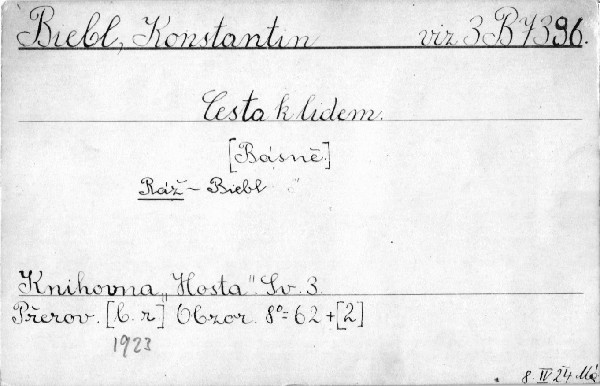 Biebl, Konstantin viz 3 B 7396.
Cesta k lidem.
[Básně.]
Ráž - Biebl
Knihovna „Hosta“ Sv. 3.
Přerov. [b. r.] Obzor. 8° = 62 + [2]
1923
8. IV 24 Má